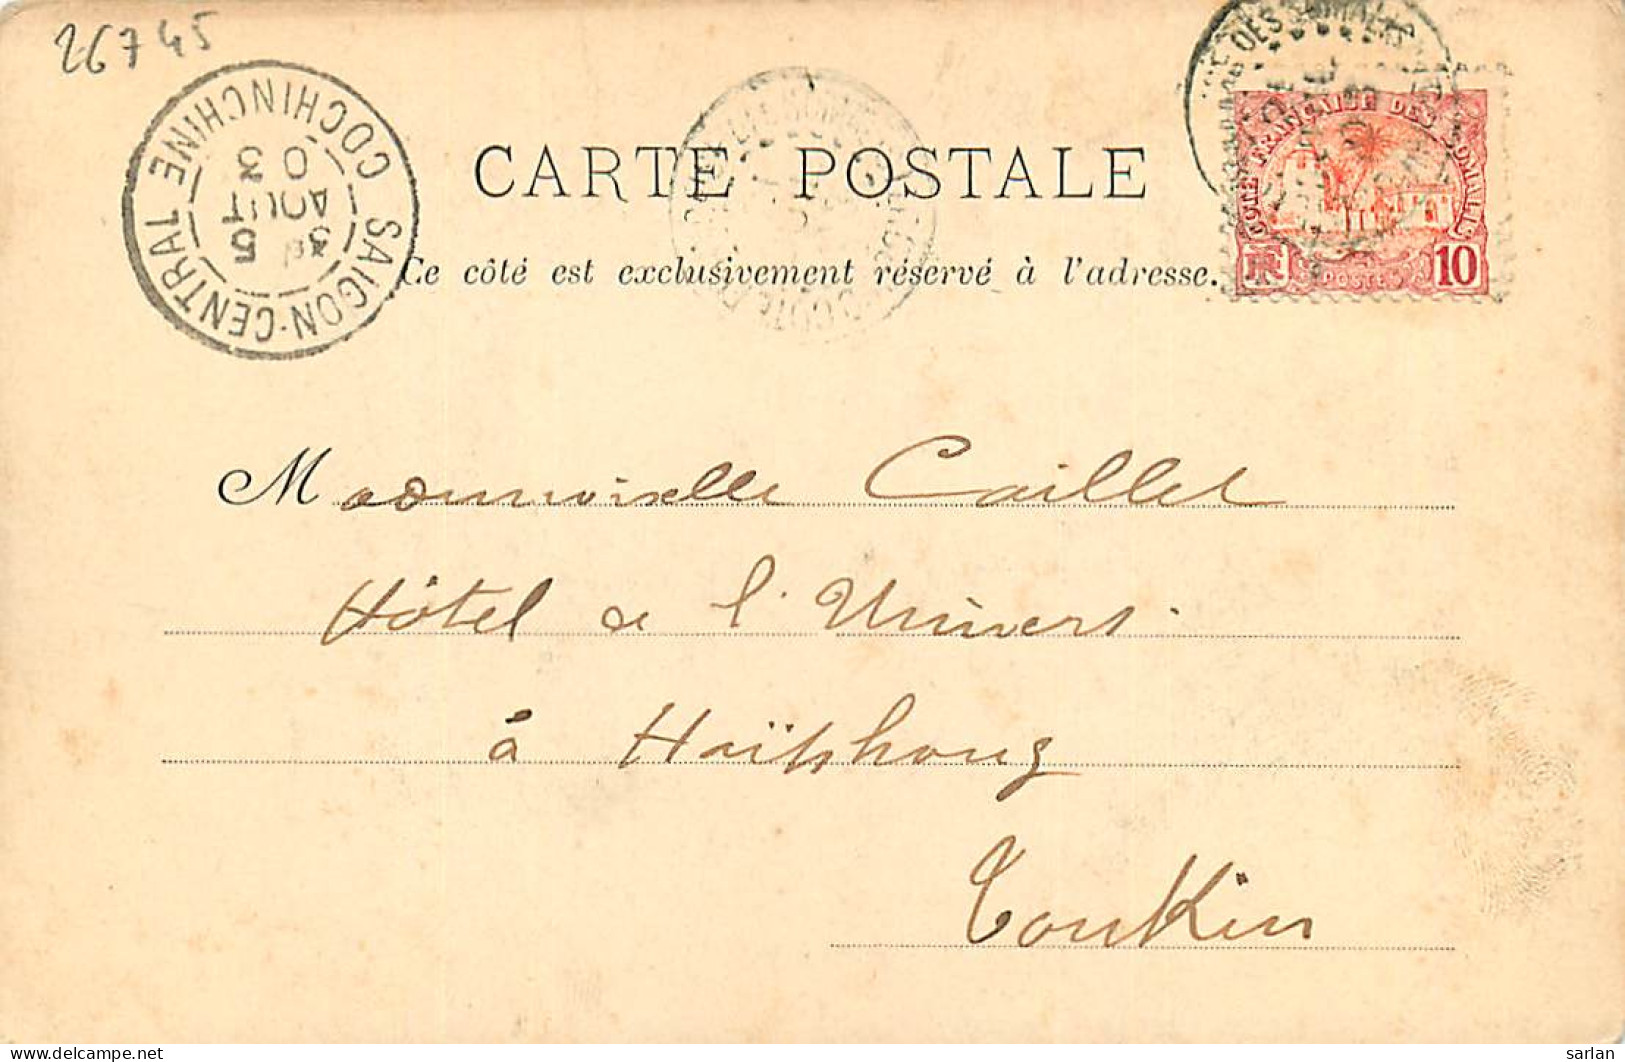 26745
SAIGON-CENTRAL COCHINCHINE
3E 5
AOUT
03
CARTE POSTALE
Ce côté est exclusivement réservé à l'adresse.
CÔTE FRANÇAISE DES SOMALIS
RF POSTES 10
Mademoiselle Caillet
Hôtel de l'Univers
à Haïphong
Tonkin
sarlan